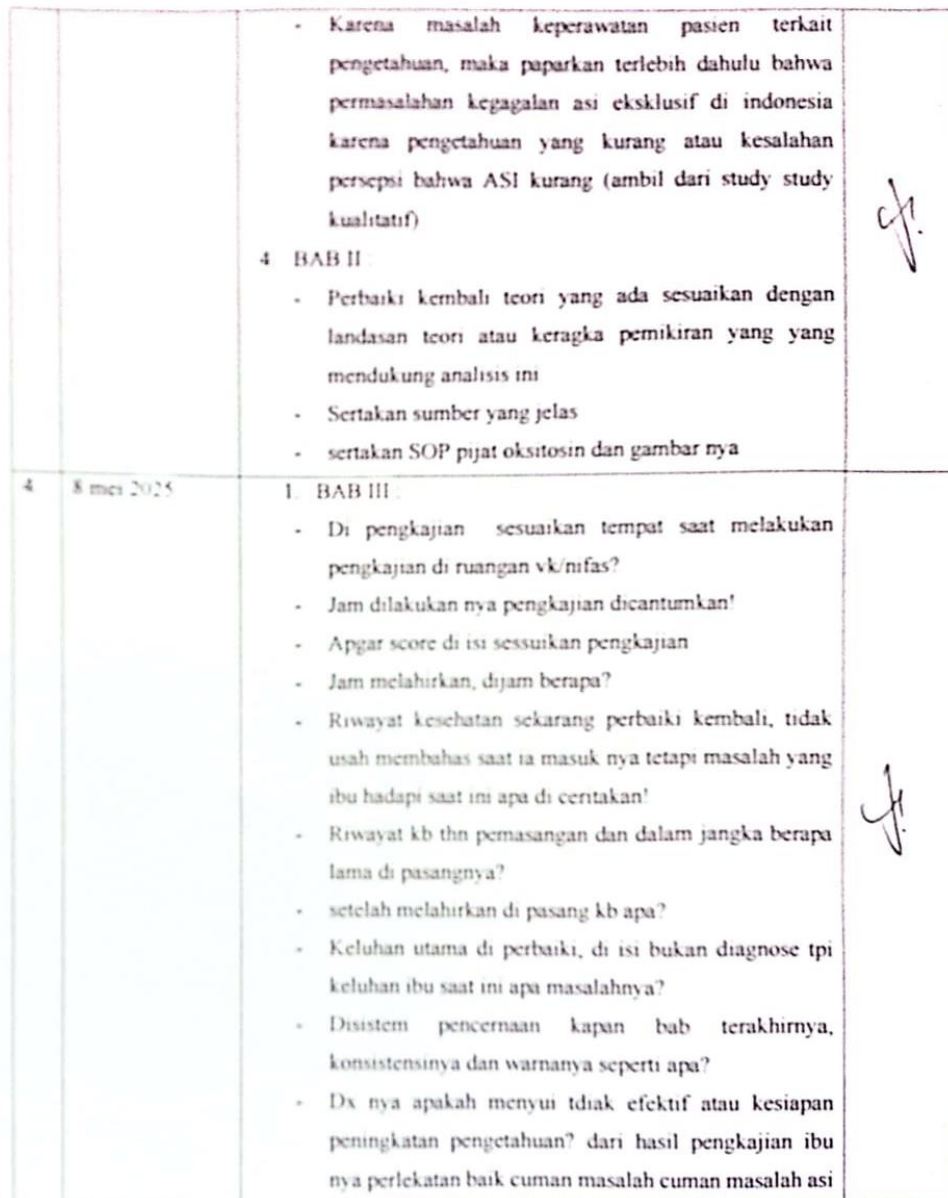 - Karena masalah keperawatan pasien terkait
pengetahuan, maka paparkan terlebih dahulu bahwa
permasalahan kegagalan asi eksklusif di indonesia
karena pengetahuan yang kurang atau kesalahan
persepsi bahwa ASI kurang (ambil dari study study
kualitatif)
4 BAB II :
- Perbaiki kembali teori yang ada sesuaikan dengan
landasan teori atau keragka pemikiran yang yang
mendukung analisis ini
- Sertakan sumber yang jelas
- sertakan SOP pijat oksitosin dan gambar nya
4 8 mei 2025 1. BAB III :
- Di pengkajian sesuaikan tempat saat melakukan
pengkajian di ruangan vk/nifas?
- Jam dilakukan nya pengkajian dicantumkan!
- Apgar score di isi sessuikan pengkajian
- Jam melahirkan, dijam berapa?
- Riwayat kesehatan sekarang perbaiki kembali, tidak
usah membahas saat ia masuk nya tetapi masalah yang
ibu hadapi saat ini apa di ceritakan!
- Riwayat kb thn pemasangan dan dalam jangka berapa
lama di pasangnya?
- setelah melahirkan di pasang kb apa?
- Keluhan utama di perbaiki, di isi bukan diagnose tpi
keluhan ibu saat ini apa masalahnya?
- Disistem pencernaan kapan bab terakhirnya,
konsistensinya dan warnanya seperti apa?
- Dx nya apakah menyui tdiak efektif atau kesiapan
peningkatan pengetahuan? dari hasil pengkajian ibu
nya perlekatan baik cuman masalah cuman masalah asi